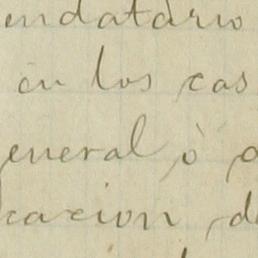 endatario
en los cas
eneral, ò
cacion, d